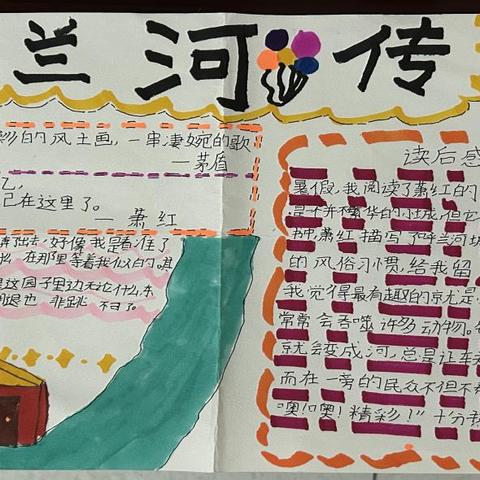 兰河传
彩的风土画,一串凄婉的歌
—茅盾
忆,
己在这里了。
— 萧红
奔出去,好像我是看准了
在那里等着我似的。其
是这园子里边无论什么东
退也 非跳 不可了。
读后感
暑假,我阅读了萧红的
是不并不繁华的小城,但它
中,萧红描写了呼兰河城
的风俗习惯,给我留
我觉得最有趣的就是
常常会吞噬许多动物。
就会变成河,总是让车
而在一旁的民众不但不
“噢!噢!精彩!”十分